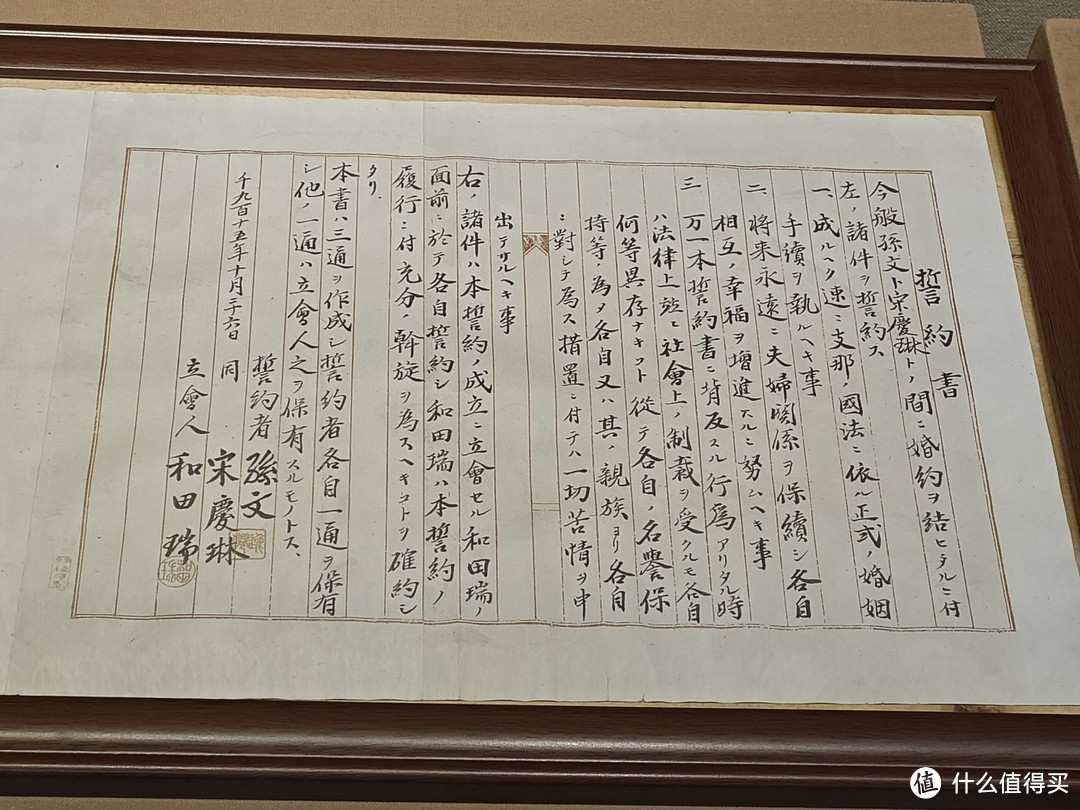 誓約書
今般孫文ト宋慶琳トノ間ニ婚約ヲ結ヒタルニ付
左ノ諸件ヲ誓約ス
一、成ルヘク速ニ支那ノ國法ニ依ル正式ノ婚姻
手續ヲ執ルヘキ事
二、将来永遠ニ夫婦関係ヲ保續シ各自
相互ノ幸福ヲ增進スルニ努ムヘキ事
三 万一本誓約書ニ背反スル行為アリタル時
ハ法律上並ニ社會上ノ制裁ヲ受クルモ各自
何等異存ナキコト從テ各自ノ名譽保
持等ノ為メ各自又ハ其ノ親族ヨリ各自
ニ對シテ為ス措置ニ付テハ一切苦情ヲ申
出テサルヘキ事
右ノ諸件ハ本誓約ノ成立ニ立會セル和田瑞ノ
面前ニ於テ各自誓約シ和田瑞ハ本誓約ノ
履行ニ付充分ノ斡旋ヲ為スヘキコトヲ確約シ
タリ.
本書ハ三通ヲ作成シ誓約者各自一通ヲ保有
シ他ノ一通ハ立會人之ヲ保有スルモノトス、
誓約者 孫文
千九百十五年十月二十六日 同 宋慶琳
立會人 和田瑞
值 什么值得买